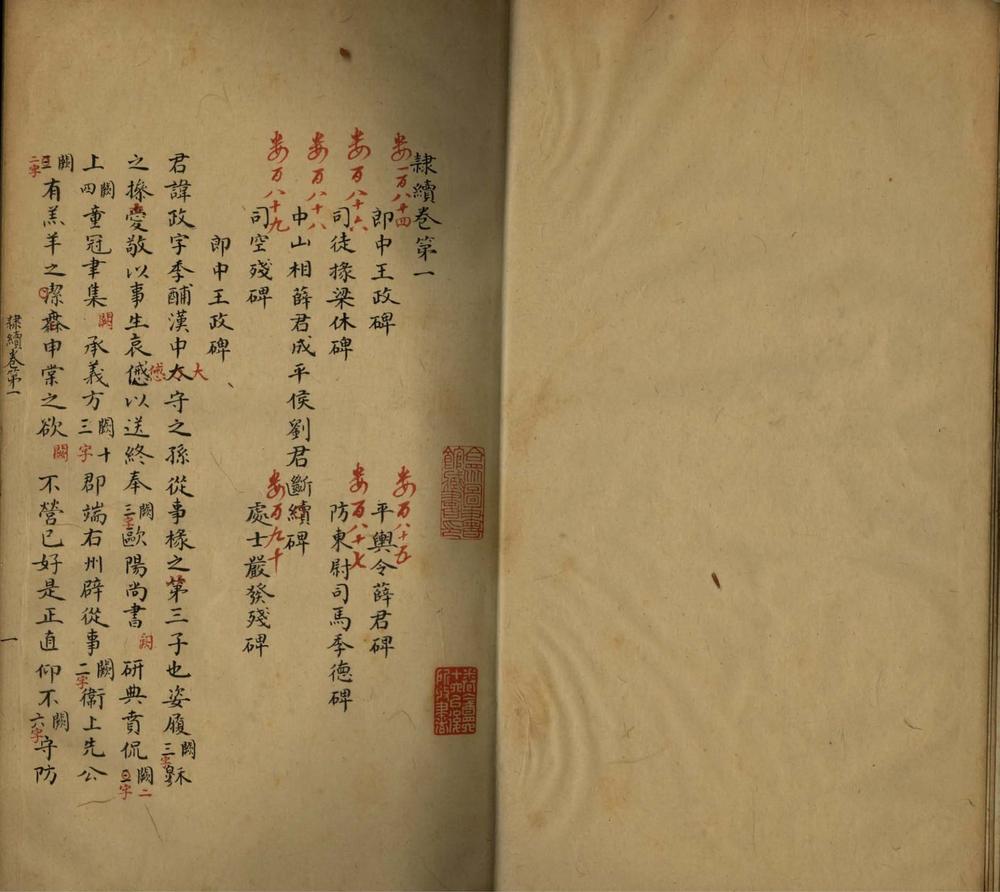 隸續卷第一
婁一万八十四
郎中王政碑
婁万八十五
平輿令薛君碑
婁万八十六
司徒掾梁休碑
婁万八十七
防東尉司馬季德碑
婁万八十八
中山相薛君成平侯劉君斷續碑
婁万八十九
司空殘碑
婁万九十
處士嚴發殘碑
郎中王政碑
君諱政字季酺漢中大守之孫從事椽之第三子也姿履闕三字穌
大
之摻愛敬以事生哀憾以送終奉闕三字歐陽尚書闕研典賁侃闕二字
憾
上闕四童冠聿集闕承義方闕十三字郡端右州辟從事闕二字衛上先公
闕二字有羔羊之潔無申棠之欲闕不營已好是正直仰不闕六字守防
隸續卷第一
一